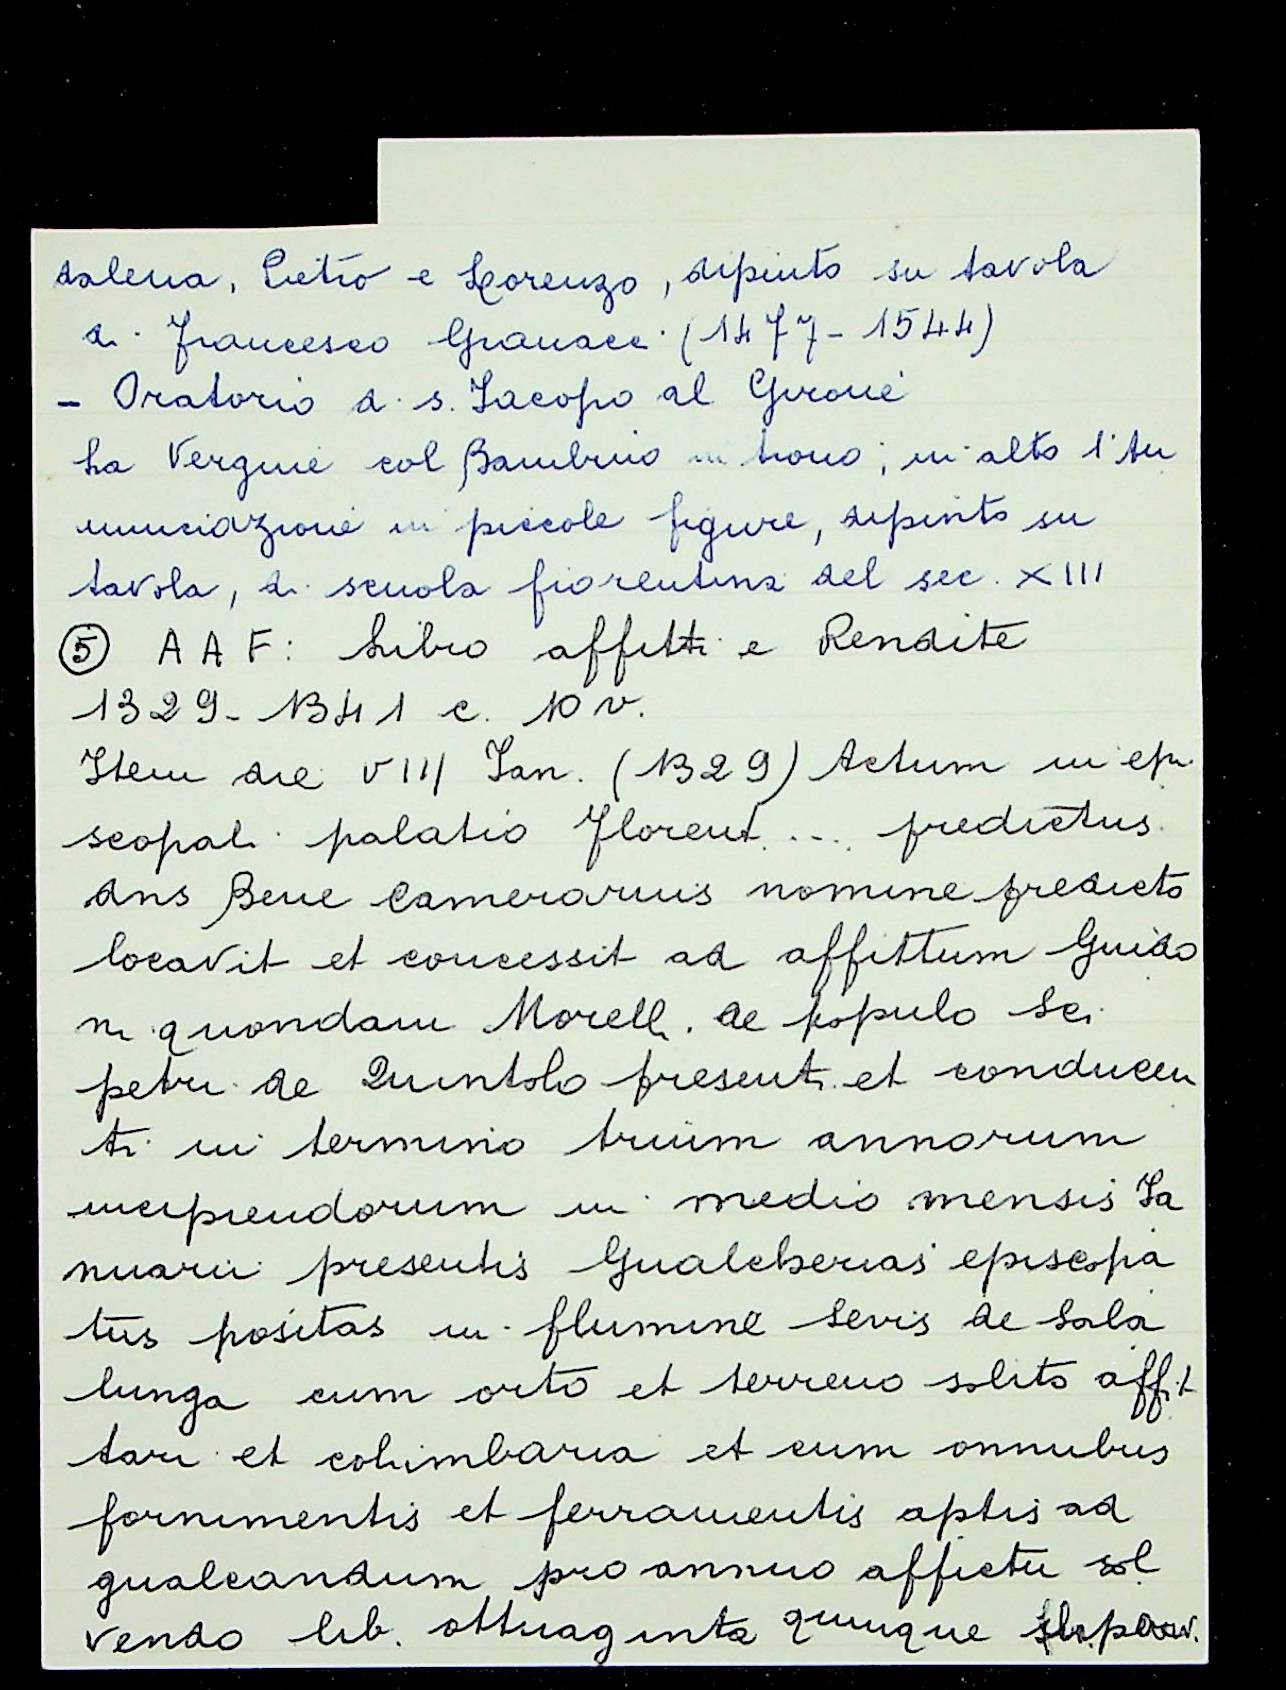 dalena, Pietro e Lorenzo, dipinto su tavola
di Francesco Granacci (1477-1544)
- Oratorio di s. Iacopo al Girone
La Vergine col Bambino in trono; in alto l'An
nunciazione in piccole figure, dipinto su
tavola, di scuola fiorentina del sec. XIII
⑤ A A F: Libro affitti e Rendite
1329-1341 c. 10 v.
Item die VIII Ian. (1329) Actum in epi
scopali palatio Florent. ... predictus
dns Bene Camerarius nomine predicto
locavit et concessit ad affittum Guido
ni quondam Morelli de populo Sci
petri de Quintolo presenti et conducen
ti in termino trium annorum
incipiendorum in medio mensis Ia
nuarii presentis Gualcherias episcopa
tus positas in flumine Sevis de Sala
lunga cum orto et terreno solito affit
tari et colimbaria et cum omnibus
fornimentis et ferramentis aptis ad
gualcandum pro annuo affictu sol
vendo lib. ottuaginta quinque